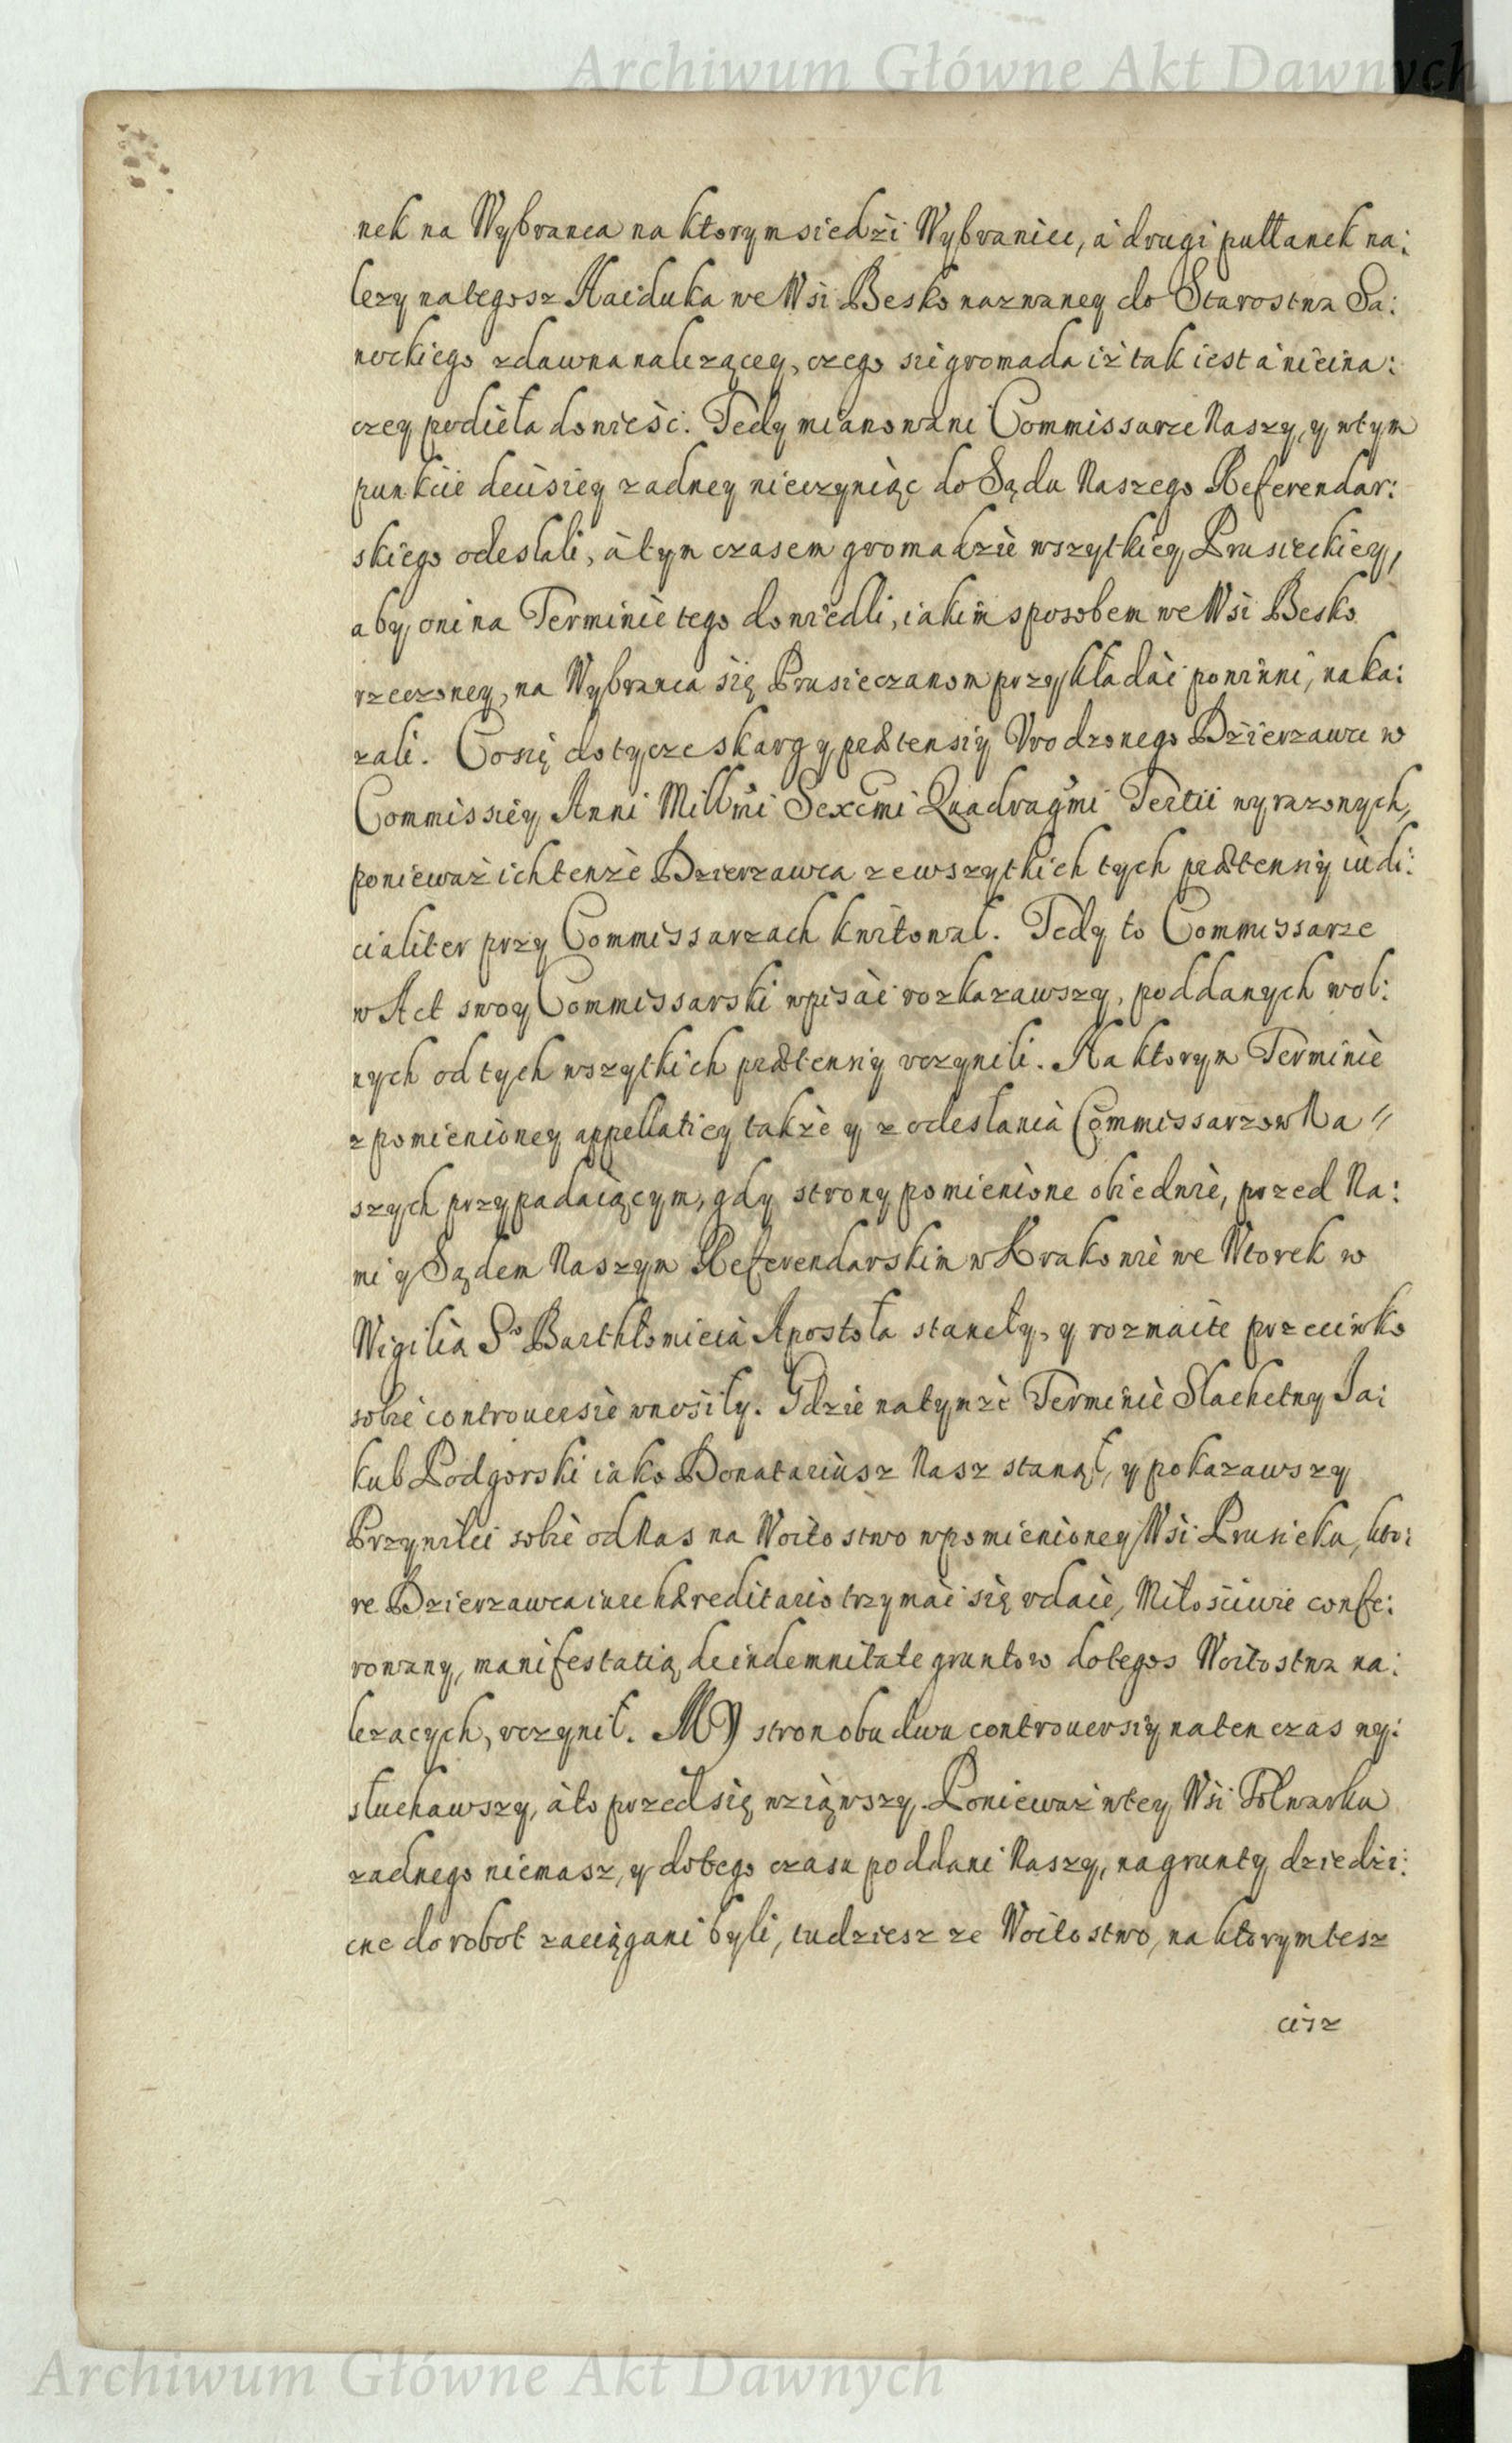 Archiwum Główne Akt Dawnych
nek na Wybranca na ktorym siedzi Wybraniec, à drugi pułłanek na:
lezy na tegosz Haiduka we Wsi Besko nazwaney do Starostwa Sa:
nockiego zdawna nalezącey, czego się gromada iż tak iest a nieina:
czey podięła dowieść. Tedy mianowani Commissarze Naszy, y w tym
punkcie decisiey zadney nieczyniąc do Sądu Naszego Referendar:
skiego odesłali, à tym czasem gromadzie wszytkiey Prusieckiey,
aby oni na Terminie tego dowiedli, iakim sposobem we Wsi Besko
rzeczoney, na Wybranca się Prusieczanom przykładać powinni, naka:
zali. Co się dotycze skarg y prætensiy Vrodzonego Dzierzawce w
Commissiey Anni Mill̃mi Sexc̃mi Quadrag̃mi Tertii wyrazonych,
ponieważ ich tenże Dzierzawca ze wszytkich tych prætensiy iudi:
cialiter przy Commissarzach kwitował. Tedy to Commissarze
w Act swoy Commissarski wpisać rozkazawszy, poddanych wol:
nych od tych wszytkich prætensiy vczynili. Na ktorym Terminie
z pomienioney appellatiey także y z odesłania Commissarzow Na//
szych przypadaiącym, gdy strony pomienione obiedwie, przed Na:
mi y Sądem Naszym Referendarskim w Krakowie we Wtorek w
Wigilią S° Barthłomieia Apostoła staneły, y rozmaite przeciwko
sobie controuersie wnosiły. Gdzie na tymże Terminie Slachetny Ja:
kub Podgorski iako Donatariusz Nasz stanął, y pokazawszy
Przywiley sobie od Nas na Woitostwo w pomienioney Wsi Prusieku, kto:
re Dzierzawca iure hæreditario trzymać się vdaie, Miłościwie confe:
rowany, manifestatią de indemnitate gruntow do tegoż Woitostwa na:
lezacych, vczynił. MY stron obudwu controuersiy na ten czas wy:
słuchawszy, à to przed się wziąwszy. Ponieważ w tey Wsi Folwarku
zadnego niemasz, y do tego czasu poddani Naszy, na grunty dziedzi:
cne do robot zaciągani byli, tudziesz ze Woitostwo, na ktorym tesz
ciż
Archiwum Główne Akt Dawnych